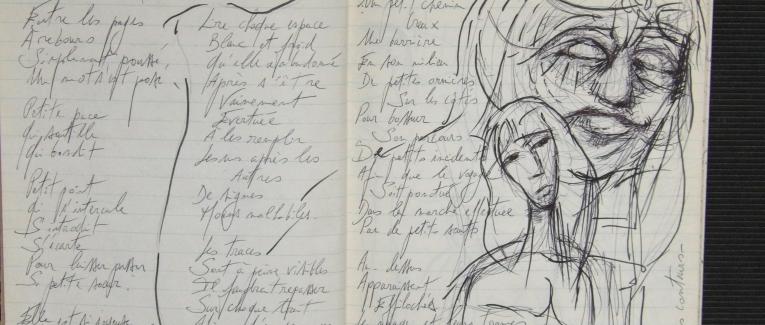 Entre les pages
A rebours
Simplement poussé,
Un mot s'est posé
Petite puce
qui sautille
qui bondit
Petit point
qui s'intercale
S'introduit
S'écarte
Pour laisser passer
Sa petite soeur.
Elle est si
Lire chaque espace
Blanc et froid
qu'elle a abandonné
Après s'être
Vainement
évertuée
A les remplir
Les uns après les
Autres
De signes
Les traces
Sont à peine visibles
Il faudra repasser
Sur chaque
Un petit chemin
Creux
Une barrière
En son milieu
De petites ornières
Sur les côtés
Pour
Son parcours
De petits incidents
Afin que le
Soit ponctué
Dans la marche effectuée
Par de petits sauts
Au-dessus
Apparaissent